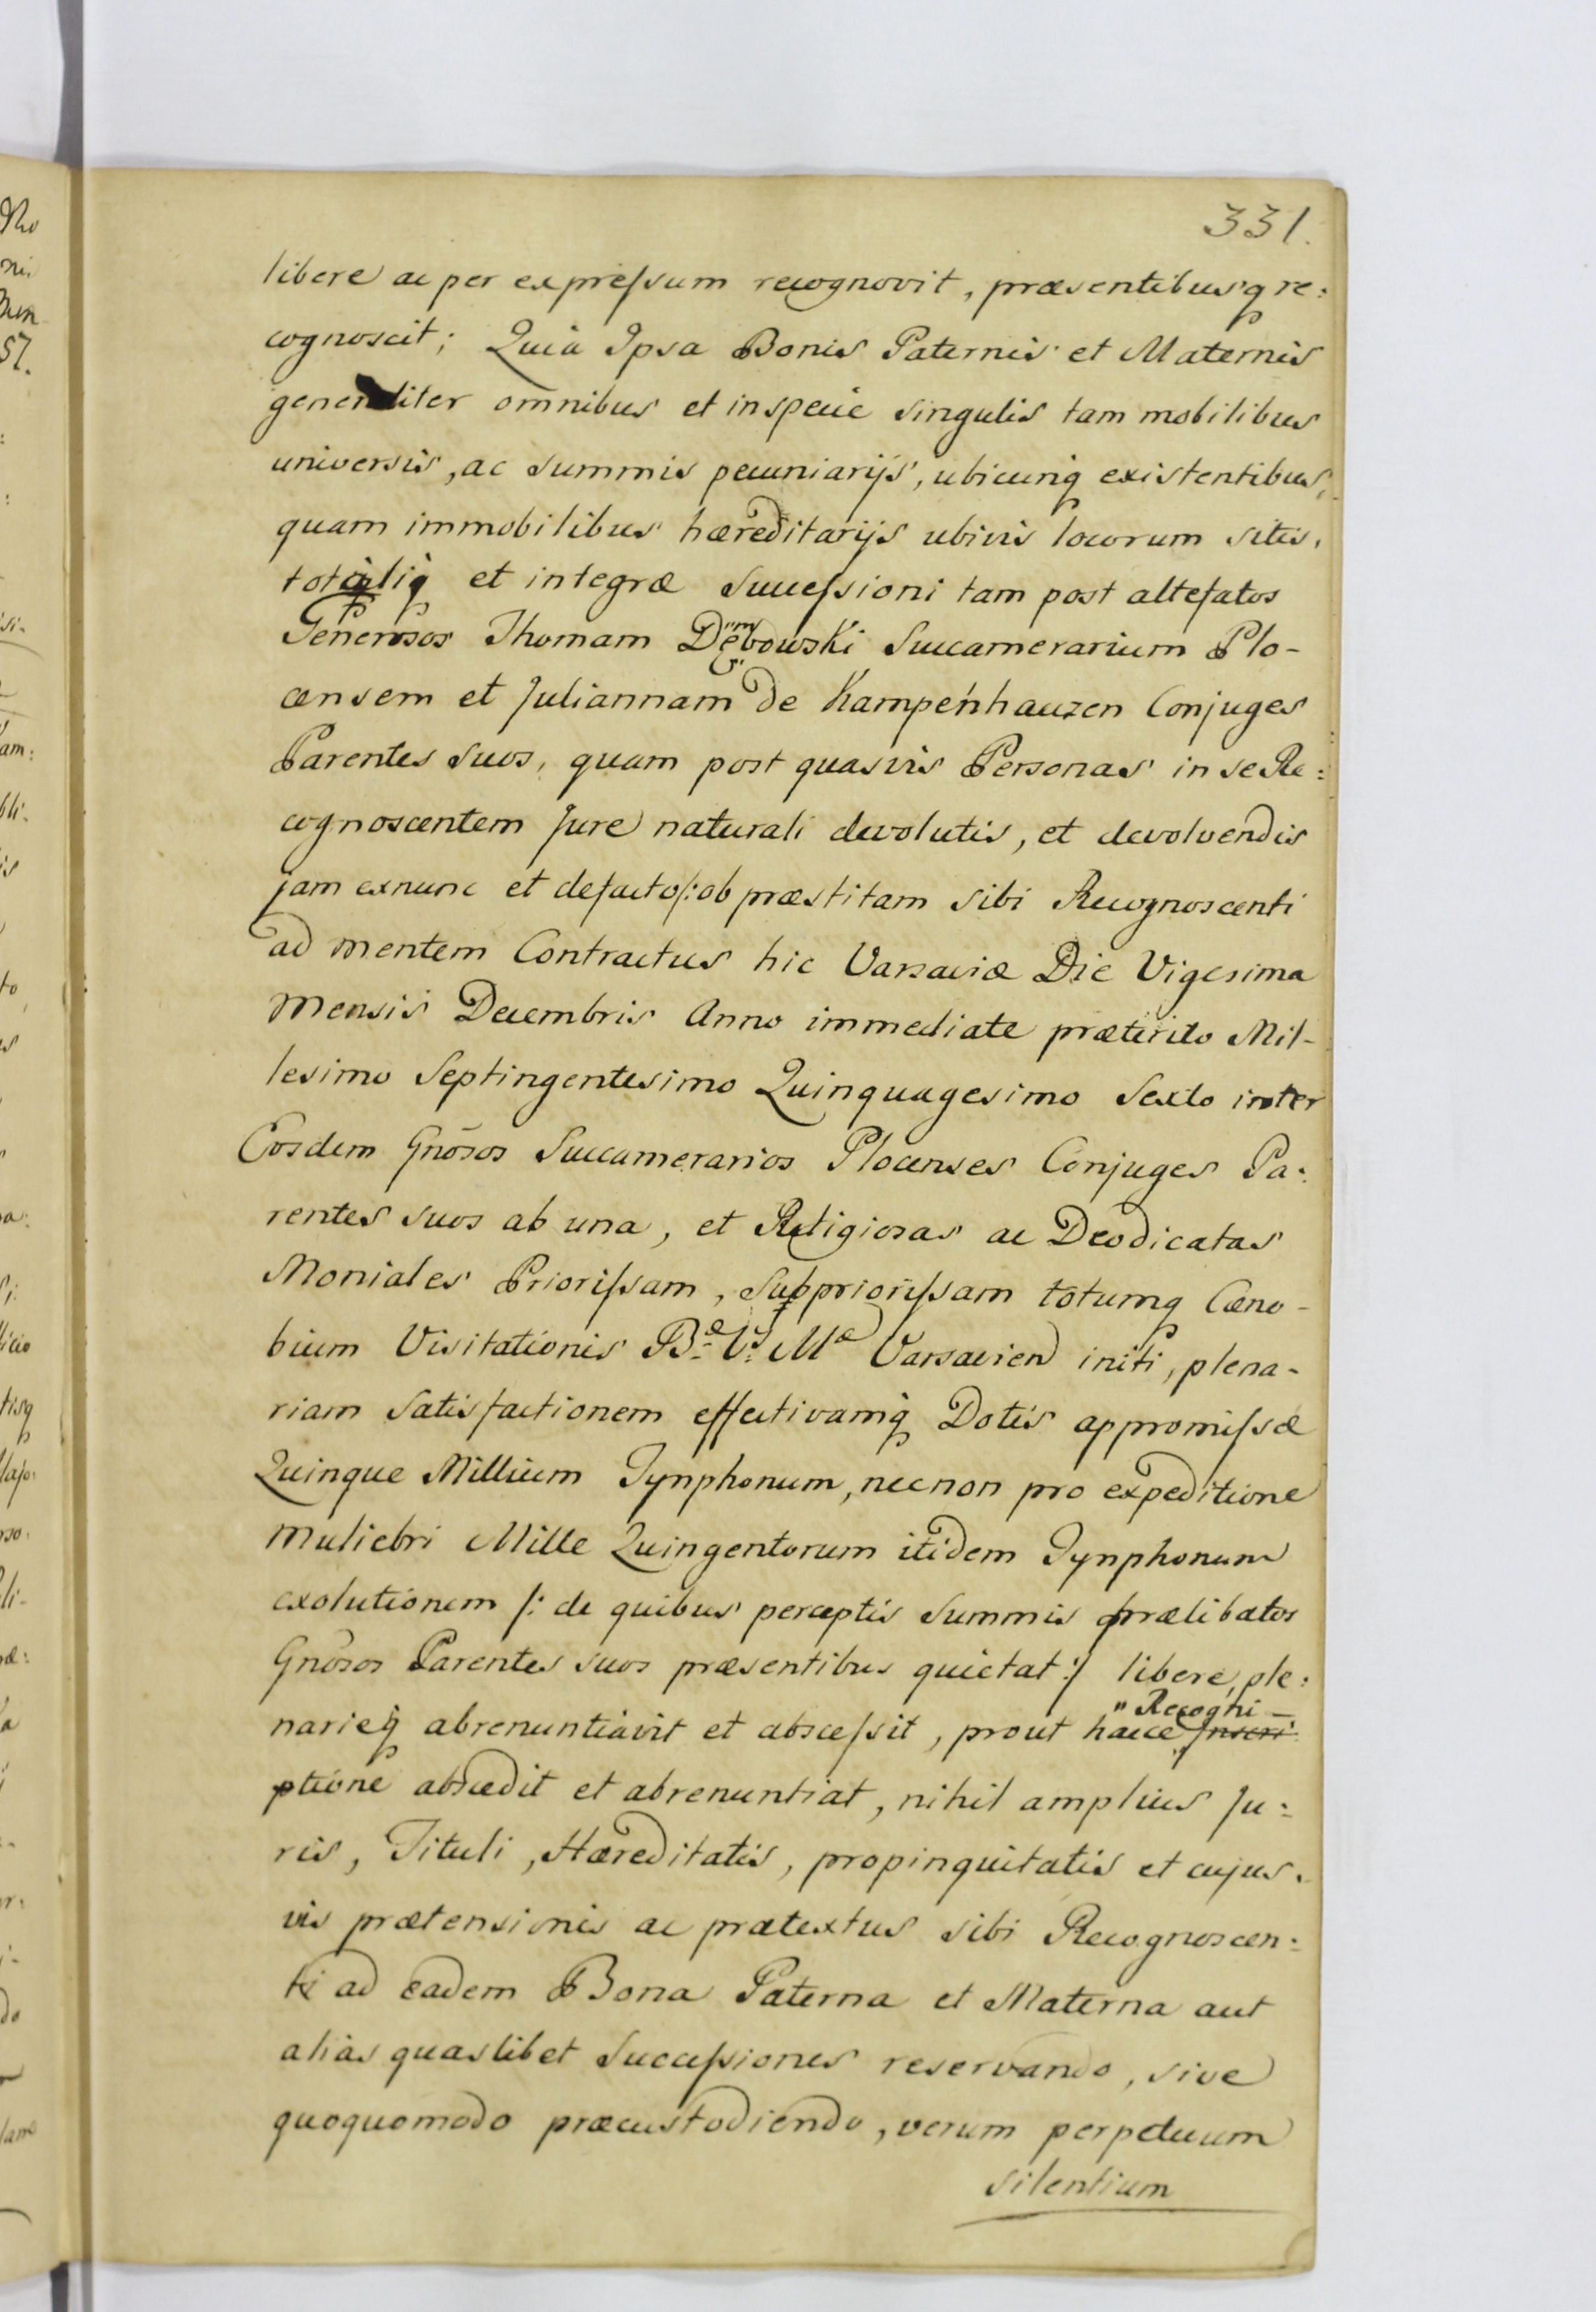 331.
libere ac per expreſsum recognovit, præsentibusq re:
cognoscit; Quia Ipsa Bonis Paternis et Maternis
generaliter omnibus et in specie singulis tam mobilibus
universis, ac summis pecuniarijs, ubicunq existentibus,
quam immobilibus hæreditarijs ubivis locorum sitis,
totaliq et integræ Succeſsioni tam post altefatos
Generosos Thomam Dębowski Succamerarium Plo-
censem et Juliannam de Kampenhauzen Conjuges
Parentes suos, quam post quasvis Personas in se Re:
cognoscentem Jure naturali devolutis, et devolvendis
jam exnunc et defacto /: ob præstitam sibi Recognoscenti
ad mentem Contractus hic Varsaviæ Die Vigesima
Mensis Decembris Anno immediate præterito Mil-
lesimo Septingentesimo Quinquagesimo Sexto inter
Eosdem Gnõsos Succamerarios Plocenses Conjuges Pa:
rentes suos ab una, et Religiosas ac Deodicatas
Moniales Prioriſsam, Subprioriſsam totumq Cæno-
bium Visitationis Bæ Vs Mæ Varsavien initi, plena-
riam satisfactionem effectivamq Dotis appromiſsæ
Quinque Millium Tynphonum, necnon pro expeditione
muliebri Mille Quingentorum itidem Tynphonum
exolutionem /: de quibus perceptis summis prælibatos
Gnõsos Parentes suos præsentibus quietat :/ libere, ple:
" Recogni -
narieq abrenuntiavit et absceſsit, prout hacce Inscri
ptione abscedit et abrenuntiat, nihil amplius Ju:
ris, Tituli, Hæreditatis, propinquitatis et cujus.
vis prætensionis ac prætextus sibi Recognoscen:
ti ad eadem Bona Paterna et Materna aut
alias quaslibet Succeſsiones reservando, sive
quoquomodo præcustodiendo, verum perpetuum
silentium